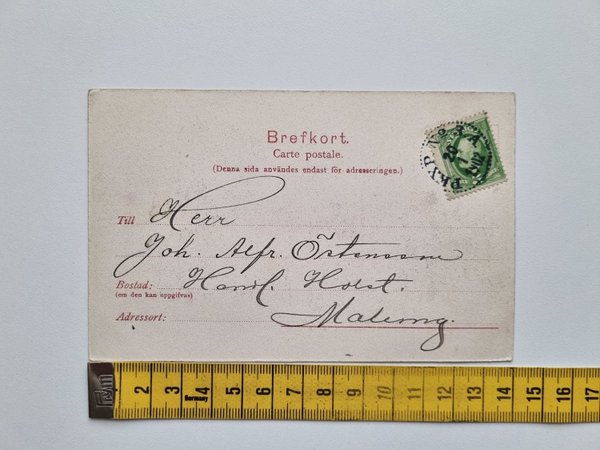 Brefkort.
Carte postale.
(Denna sida användes endast för adresseringen.)
PKXP No 
Till Herr
Joh. Alfr. Östensson
Bostad: Handl. Holst.
(om den kan uppgifvas)
Adressort: Malung.
1 2 3 4 5 6 7 8 9 10 11 12 13 14 15 16 17
Germany